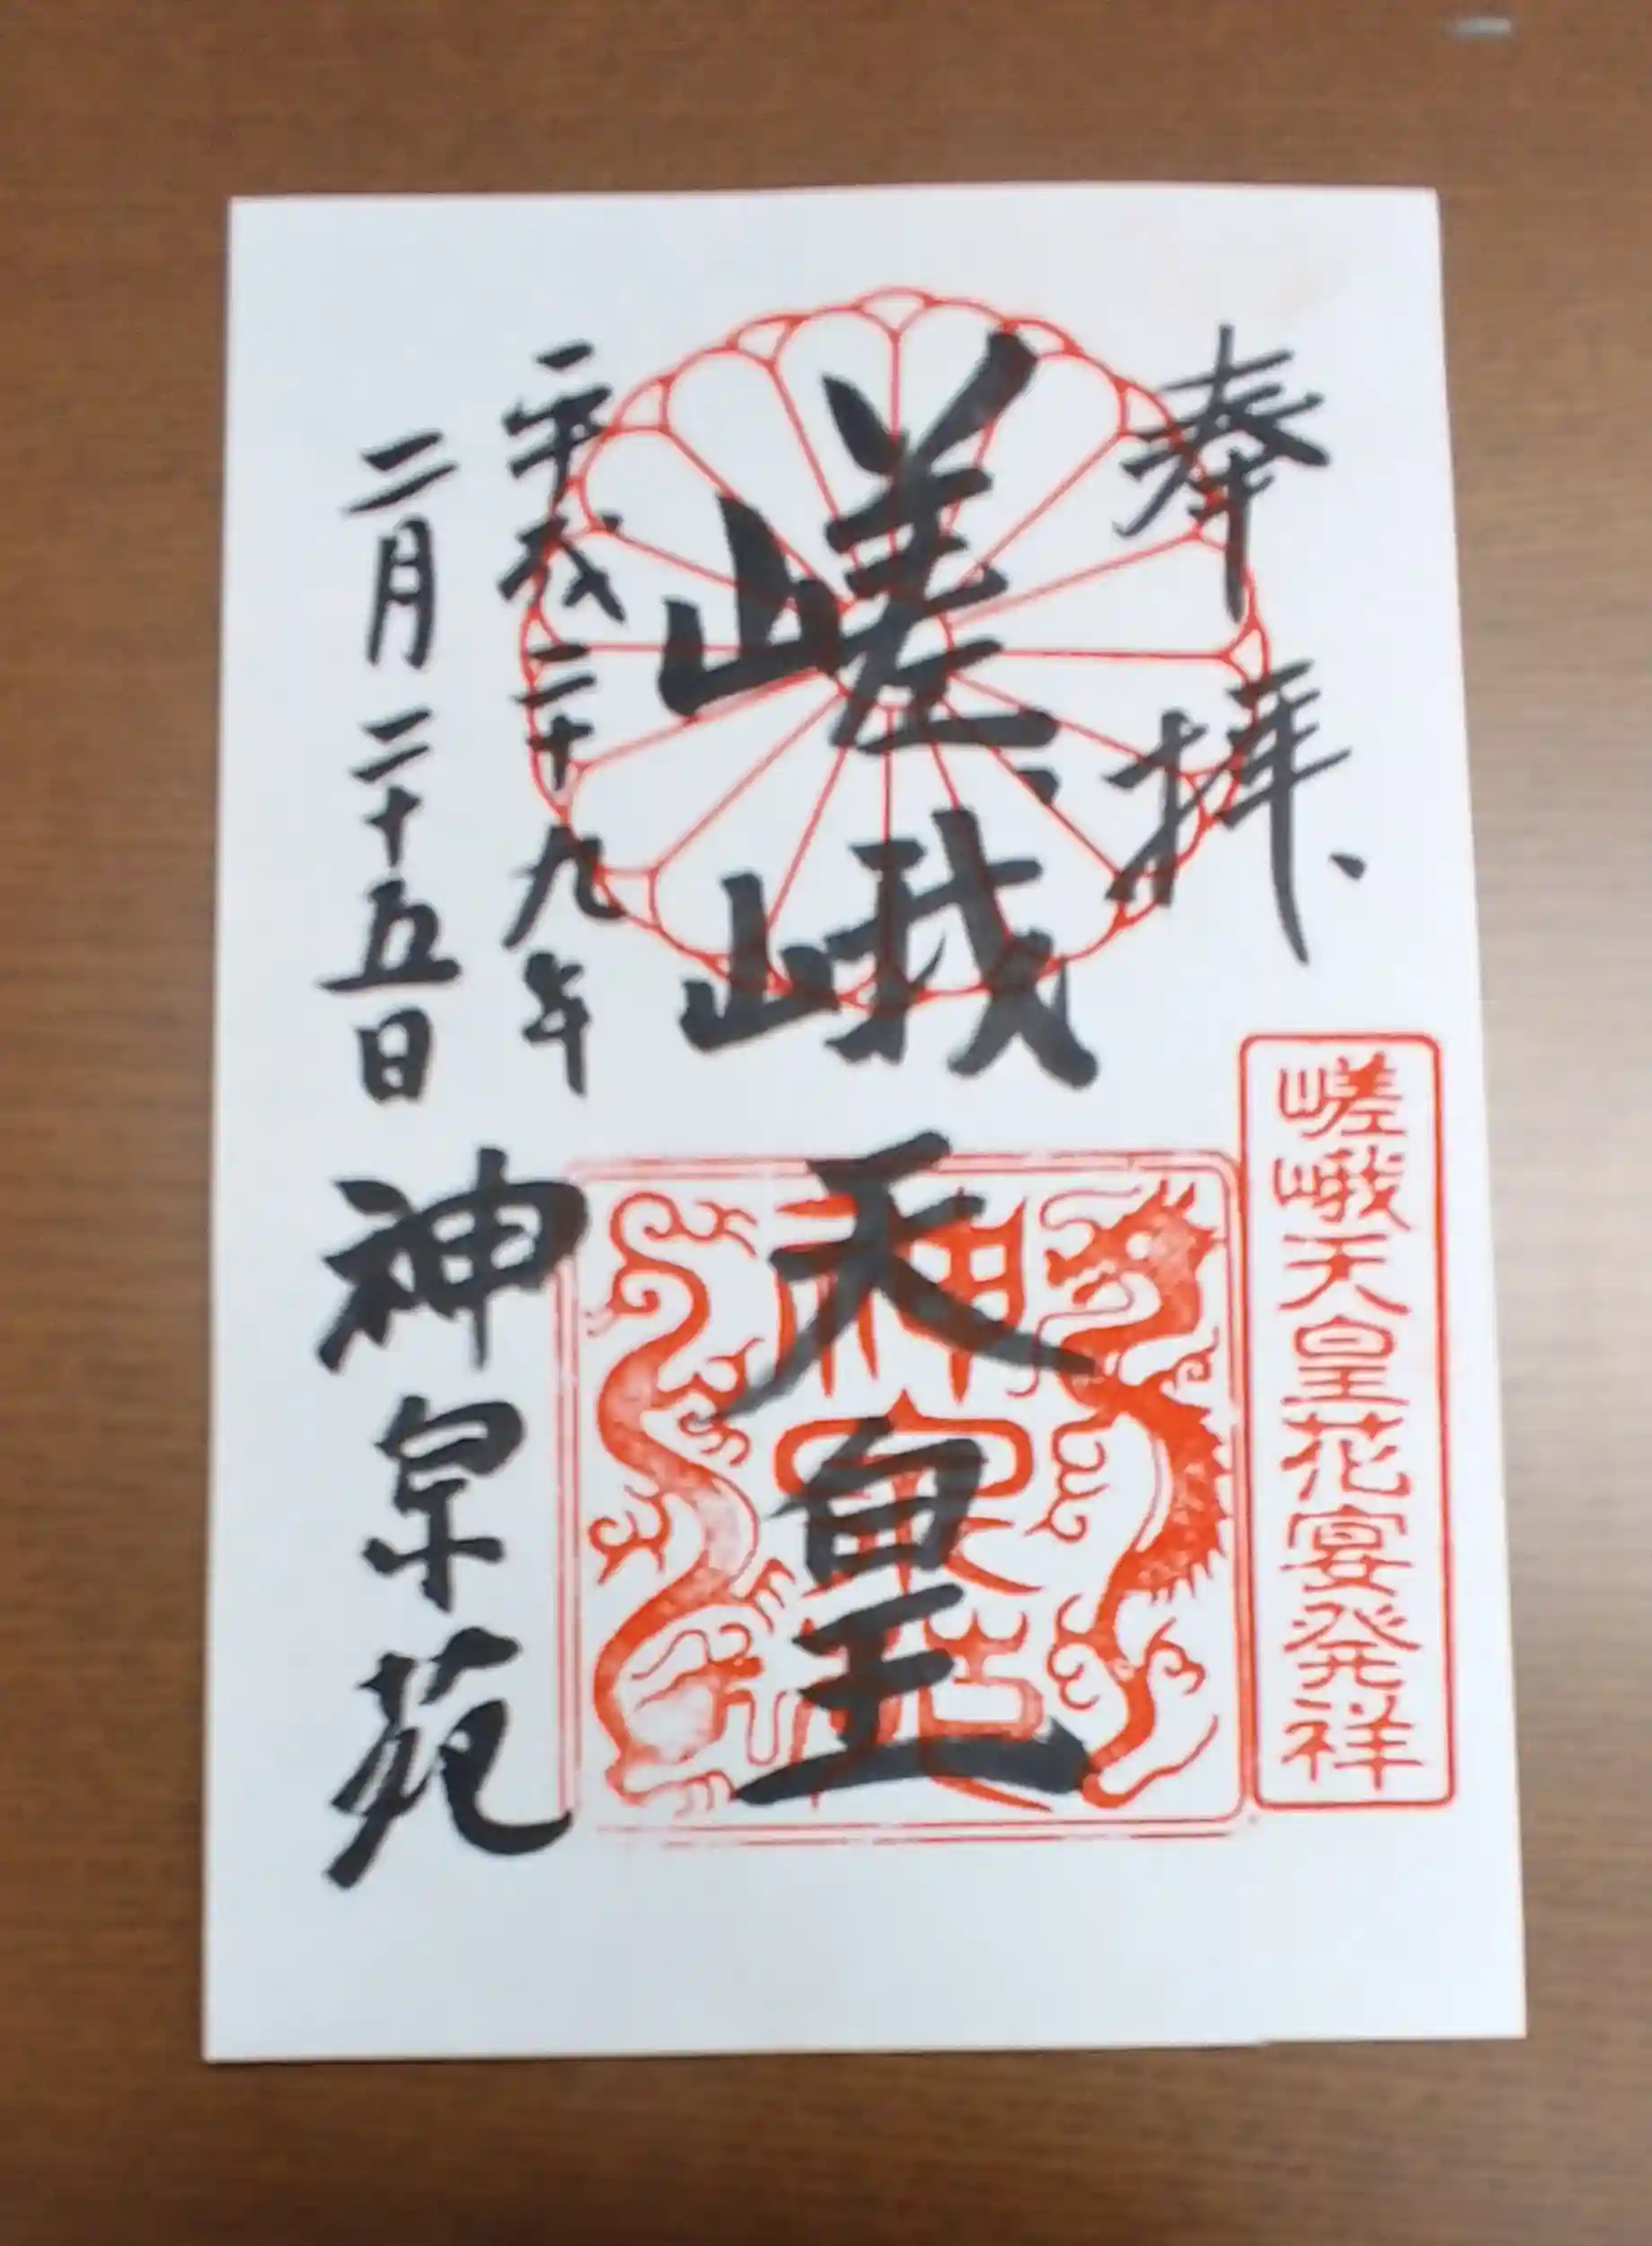 奉拝
嵯峨天皇花宴発祥
嵯峨天皇
神泉苑
平成二十九年
二月二十五日
神泉苑